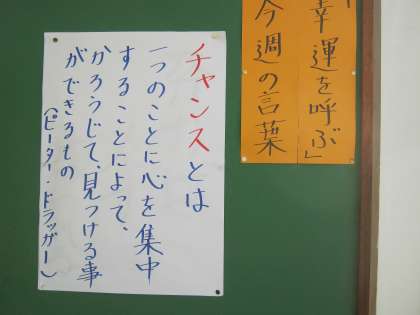 「幸運を呼ぶ」
今週の言葉
チャンスとは
一つのことに心を集中
することによって、
かろうじて、見つける事
ができるもの
(ピーター・ドラッガー)